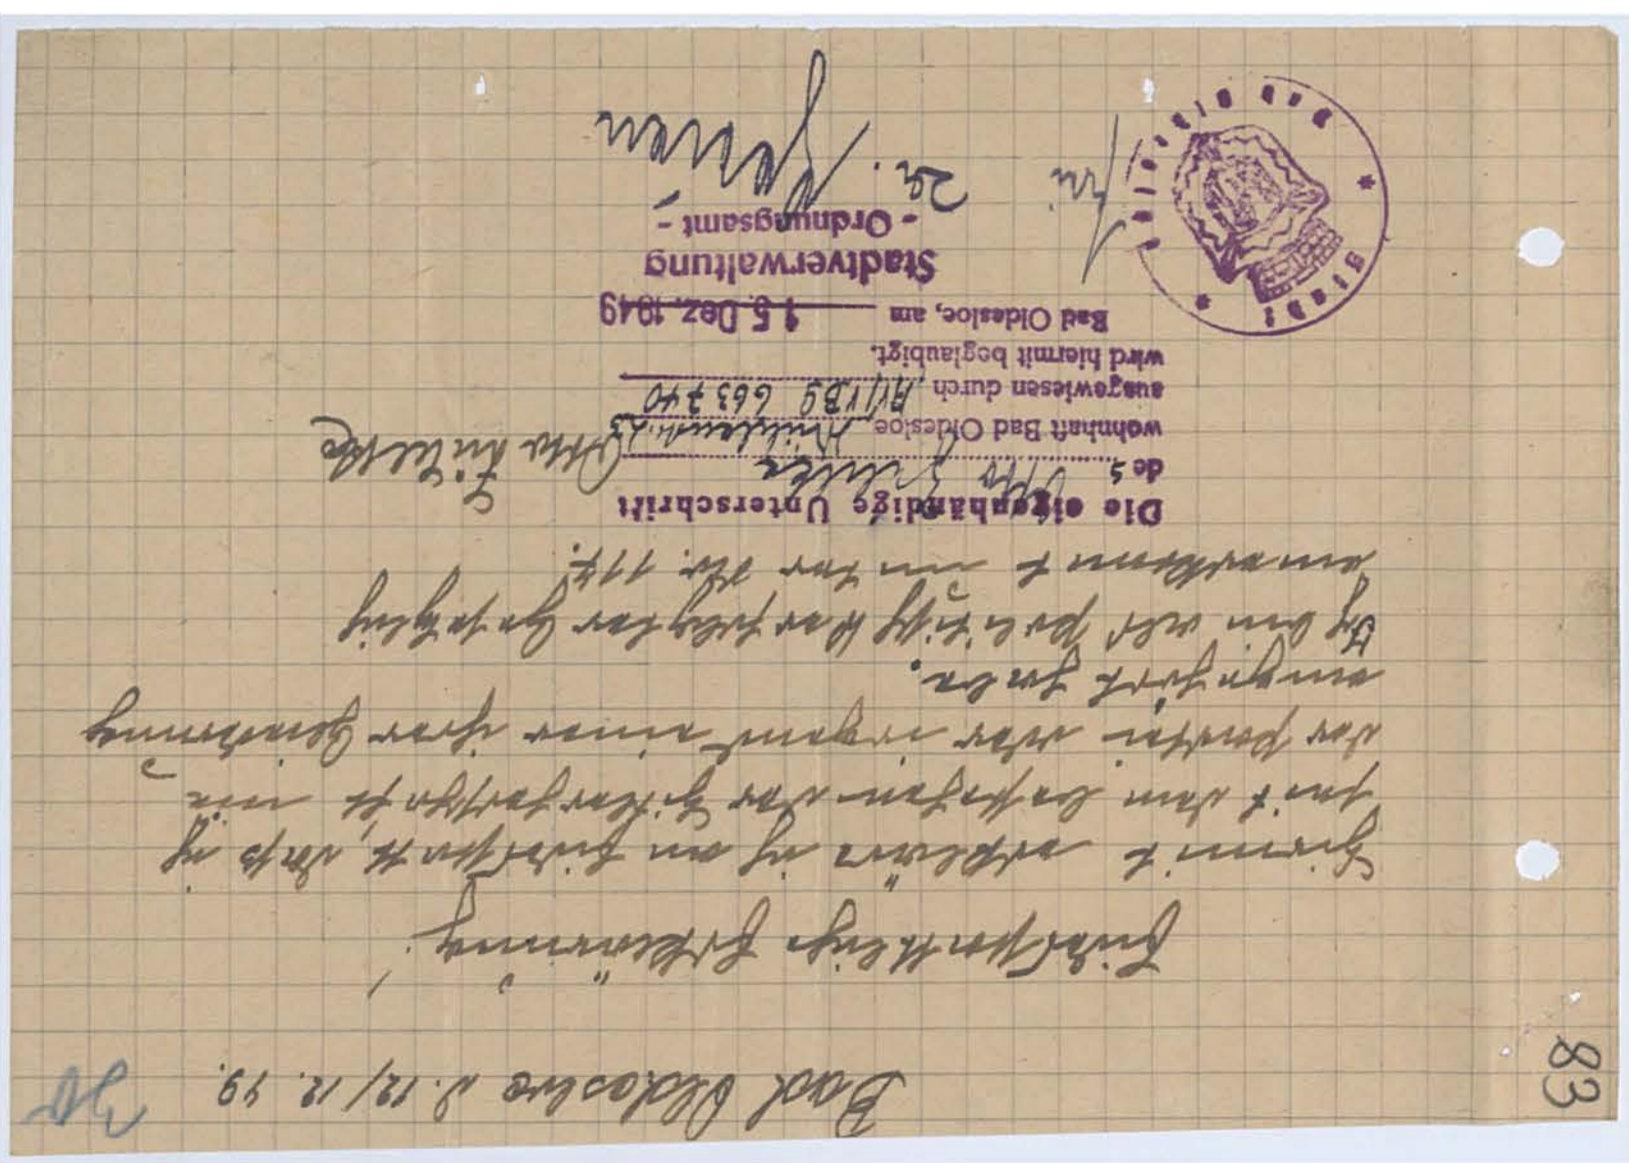 83
30
Bad Oldesloe d. 12/12. 49.
Eidesstattliche Erklärung!
Hiermit erkläre ich an Eidesstatt, daß ich
seit dem bestehen der Hitlerherrschaft, nie
der Partei oder irgend einer ihrer Gliederung
angehört habe.
Ich bin als politisch Verfolgter Gesetzlich
anerkannt unter Nr. 117.
Die eigenhändige Unterschrift
des Otto Lütke
Otto Lütke
wohnhaft Bad Oldesloe,
ausgewiesen durch 663740
wird hiermit beglaubigt.
Bad Oldesloe, am 15. Dez. 1949
Stadtverwaltung
- Ordnungsamt -
Stadt Bad Oldesloe